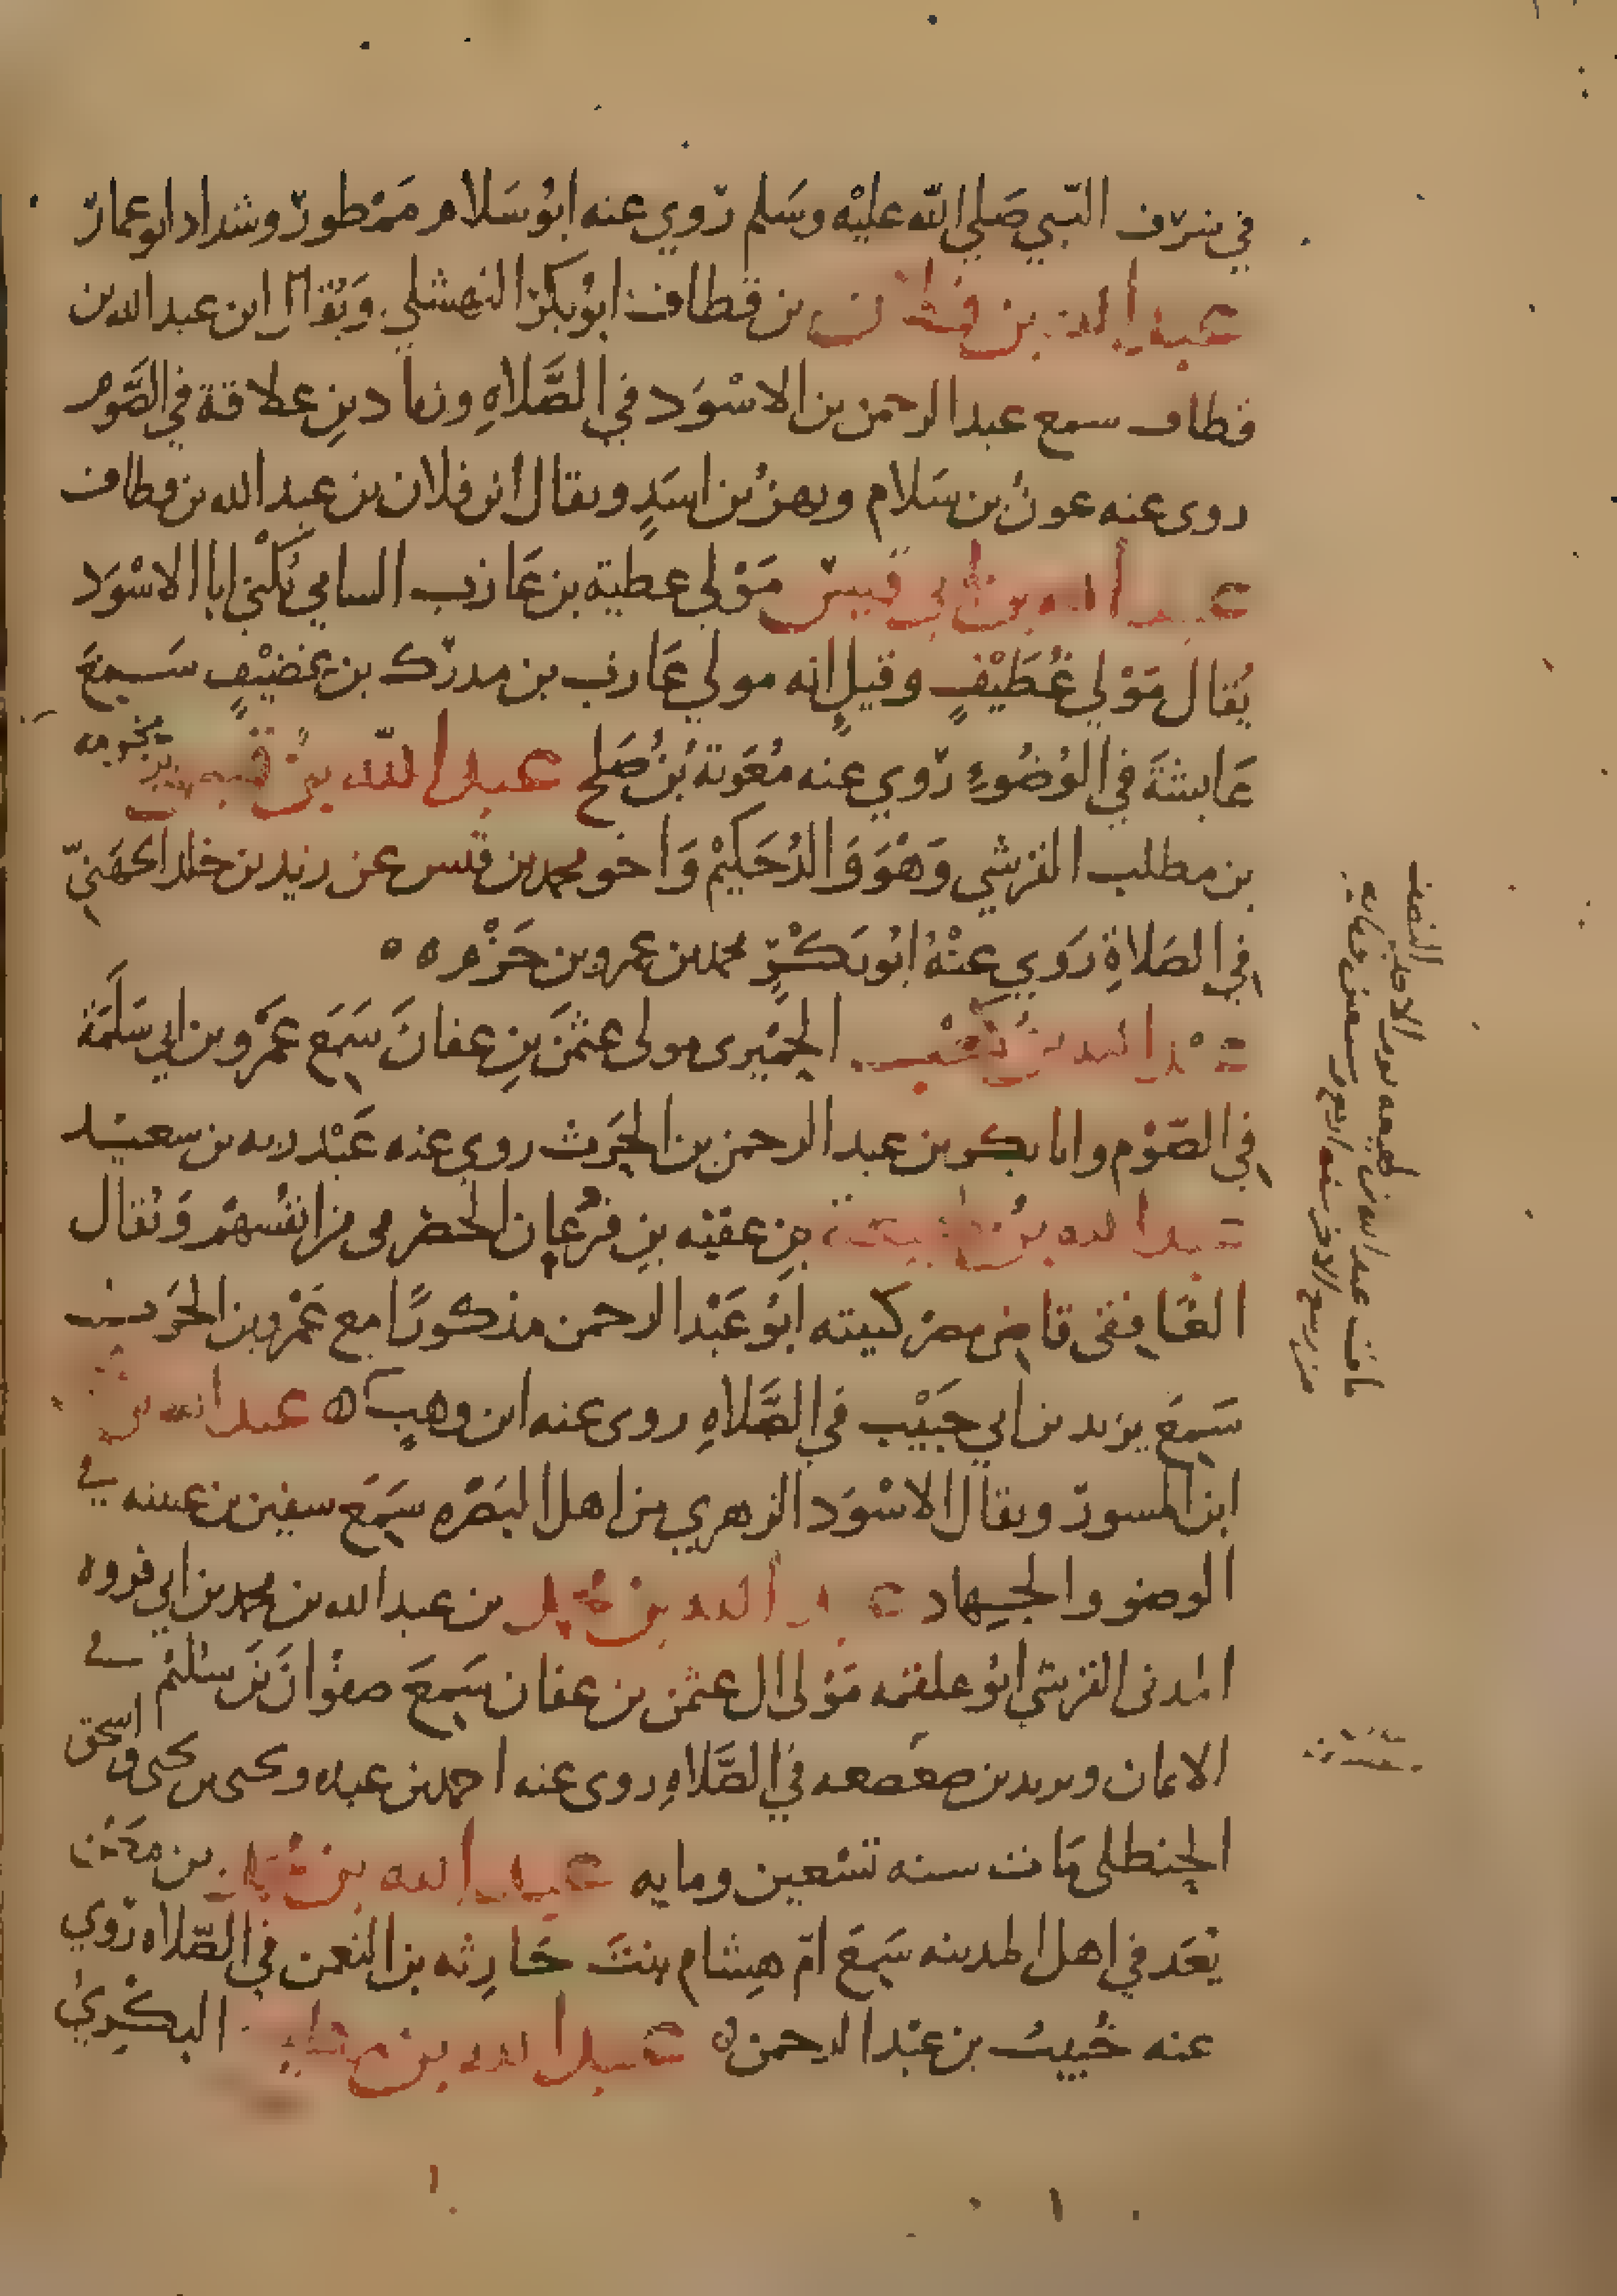 في شرف النبي صَلي الله عليْه وسَلم روي عنه ابوُ سَلام ممَطور وشداد ابو عمار
عبد الله بن قطاف بن قطاف ابوُ بكر النهشلي ويُقال ابن عبد الله بن
قطاف سمع عبد الرحمن بن الاسْوَد في الصَّلاهِ وزياد بنِ علاقة في الصَّوْم
روى عنه عونُ بن سَلام وبهزُ بن اسَدٍ ويقال ابن فلان بن عبد الله بن قطاف
عبد الله بن ابي قيس مَوْلي عطية بن عَازب السامي يُكْنَى ابا الاسْوَد
يُقال مَوْلي غُطَيْفٍ وقيل انه مولي عَازب بن مدرك بن غضيْفٍ سَمِعَ
عَايشةَ في الوُضُوءِ روي عنه مُعَوية بُن صَلح عبد الله بن قيس بن مخرمه
بن مطلب القرشي وَهْوَ وَالدُ حَكيْم وَاخو محمد بن قيس عن زيد بن خلد الجهَنِيّ
فِي الصَلاةِ رَوي عنْهُ ابُو بَكْرِ محمد بن عمرو بن حَزْم ه ه
عبد الله بن كَعْب الحِمْيَرى مولى عثمَنَ بنِ عفانَ سَمِعَ عمَرْو بن ابي سَلَمَةَ
فِي الصّوْم وابا بكر بن عبد الرحمن بن الحرث روي عنه عَبْد ربه بن سعيْد
عبد الله بن لهيعة بن عقبْه بنِ فرُعان الحضرمى من انفُسهمْ وَيُقال
الغَافِقى قاضِى مصر كنيته ابوُ عَبْد الرحمن مذكورًا مع عَمْرو بن الحرَث
سَمِعَ يزيد بن ابي حَبيْب في الصَّلاهِ روى عنه ابن وهب ه عبد الله بن
ابن المسور ويقال الاسْوَد الزهري من اهل البَصْره سَمِعَ سفين بن عيينه في
الوضو والجِهاد عبد الله بن محمد بن عبد الله بن محمد بن ابي فروه
المدنى القرشي ابوُ علقمْه مَوْلى ال عثمن بن عفان سَمِعَ صفوْانَ بَن سُليْم في
الايمان ويزيد بن صعَصعه في الصَّلاهِ روى عنه احمد بن عبده ويحيى بن يحيى واسحق
الحنظلى مَات سنه تسْعين ومايه عبد الله بن محمد بن معَن
يُعَد في اهل المدينه سَمِعَ امّ هِشام بنتَ حَارِثه بن النعمن في الصّلاه روي
عنه خُبيبُ بن عبْد الرحمن ه عبد الله بن مطر البكْرِيُ